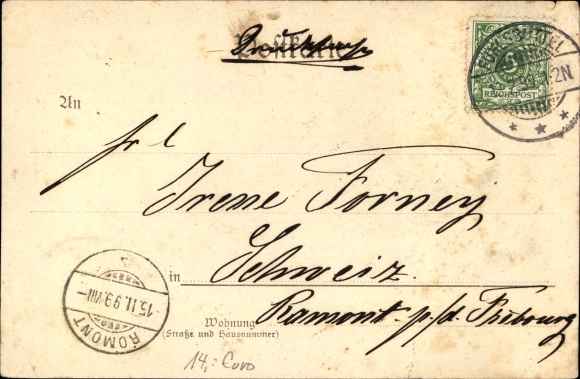 Postkarte
Drucksache
5
REICHSPOST
1-2N
An
Frl
Irene Forney
in Schweiz.
Wohnung
(Straße und Hausnummer)
Ramont p/d. Fribourg
ROMONT
15.II.99.VIII
14,- Euro